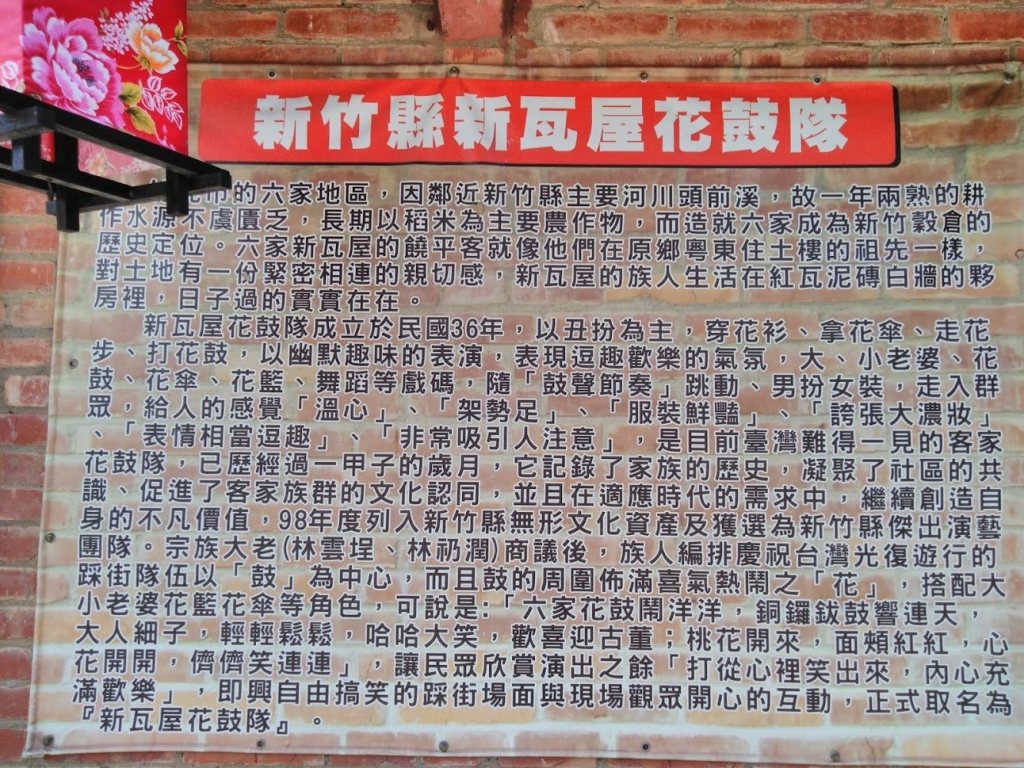 新竹縣新瓦屋花鼓隊
市的六家地區，因鄰近新竹縣主要河川頭前溪，故一年兩熟的耕
作水源不虞匱乏，長期以稻米為主要農作物，而造就六家成為新竹穀倉的
歷史定位。六家新瓦屋的饒平客就像他們在原鄉粵東住土樓的祖先一樣，
對土地有一份緊密相連的親切感，新瓦屋的族人生活在紅瓦泥磚白牆的夥
房裡，日子過的實實在在。
新瓦屋花鼓隊成立於民國36年，以丑扮為主，穿花衫、拿花傘、走花
步、打花鼓，以幽默趣味的表演，表現逗趣歡樂的氣氛，大、小老婆、花
鼓、花傘、花籃、舞蹈等戲碼，隨「鼓聲節奏」跳動、男扮女裝，走入群
眾，給人的感覺「溫心」、「架勢足」、「服裝鮮豔」、「誇張大濃妝」
、「表情相當逗趣」、「非常吸引人注意」，是目前臺灣難得一見的客家
花鼓隊，已歷經過一甲子的歲月，它記錄了家族的歷史，凝聚了社區的共
識、促進了客家族群的文化認同，並且在適應時代的需求中，繼續創造自
身的不凡價值，98年度列入新竹縣無形文化資產及獲選為新竹縣傑出演藝
團隊。宗族大老(林雲埕、林礽潤)商議後，族人編排慶祝台灣光復遊行的
踩街隊伍以「鼓」為中心，而且鼓的周圍佈滿喜氣熱鬧之「花」，搭配大
小老婆花籃花傘等角色，可說是:「六家花鼓鬧洋洋，銅鑼鈸鼓響連天，
大人細子，輕輕鬆鬆，哈哈大笑，歡喜迎古董；桃花開來，面頰紅紅，心
花開開，儕儕笑連連」，讓民眾欣賞演出之餘「打從心裡笑出來，內心充
滿歡樂」，即興自由搞笑的踩街場面與現場觀眾開心的互動，正式取名為
『新瓦屋花鼓隊』。